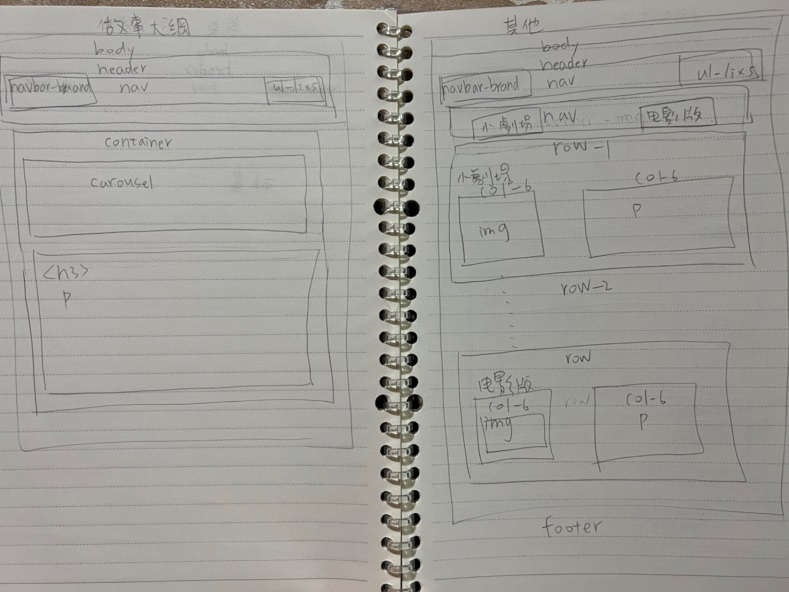 故事大綱
body
header
navbar-brand nav ul-li×5
container
carousel
<h3>
p
其他
body
header
navbar-brand nav ul-li×5
小劇場 nav 电影版
row-1
小劇場
col-6 col-6
img p
row-2
row
电影版
col-6 col-6
img p
footer